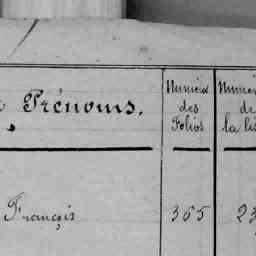 Prénoms.
Numéros des Folios
Numéros de la lis
François 365 23